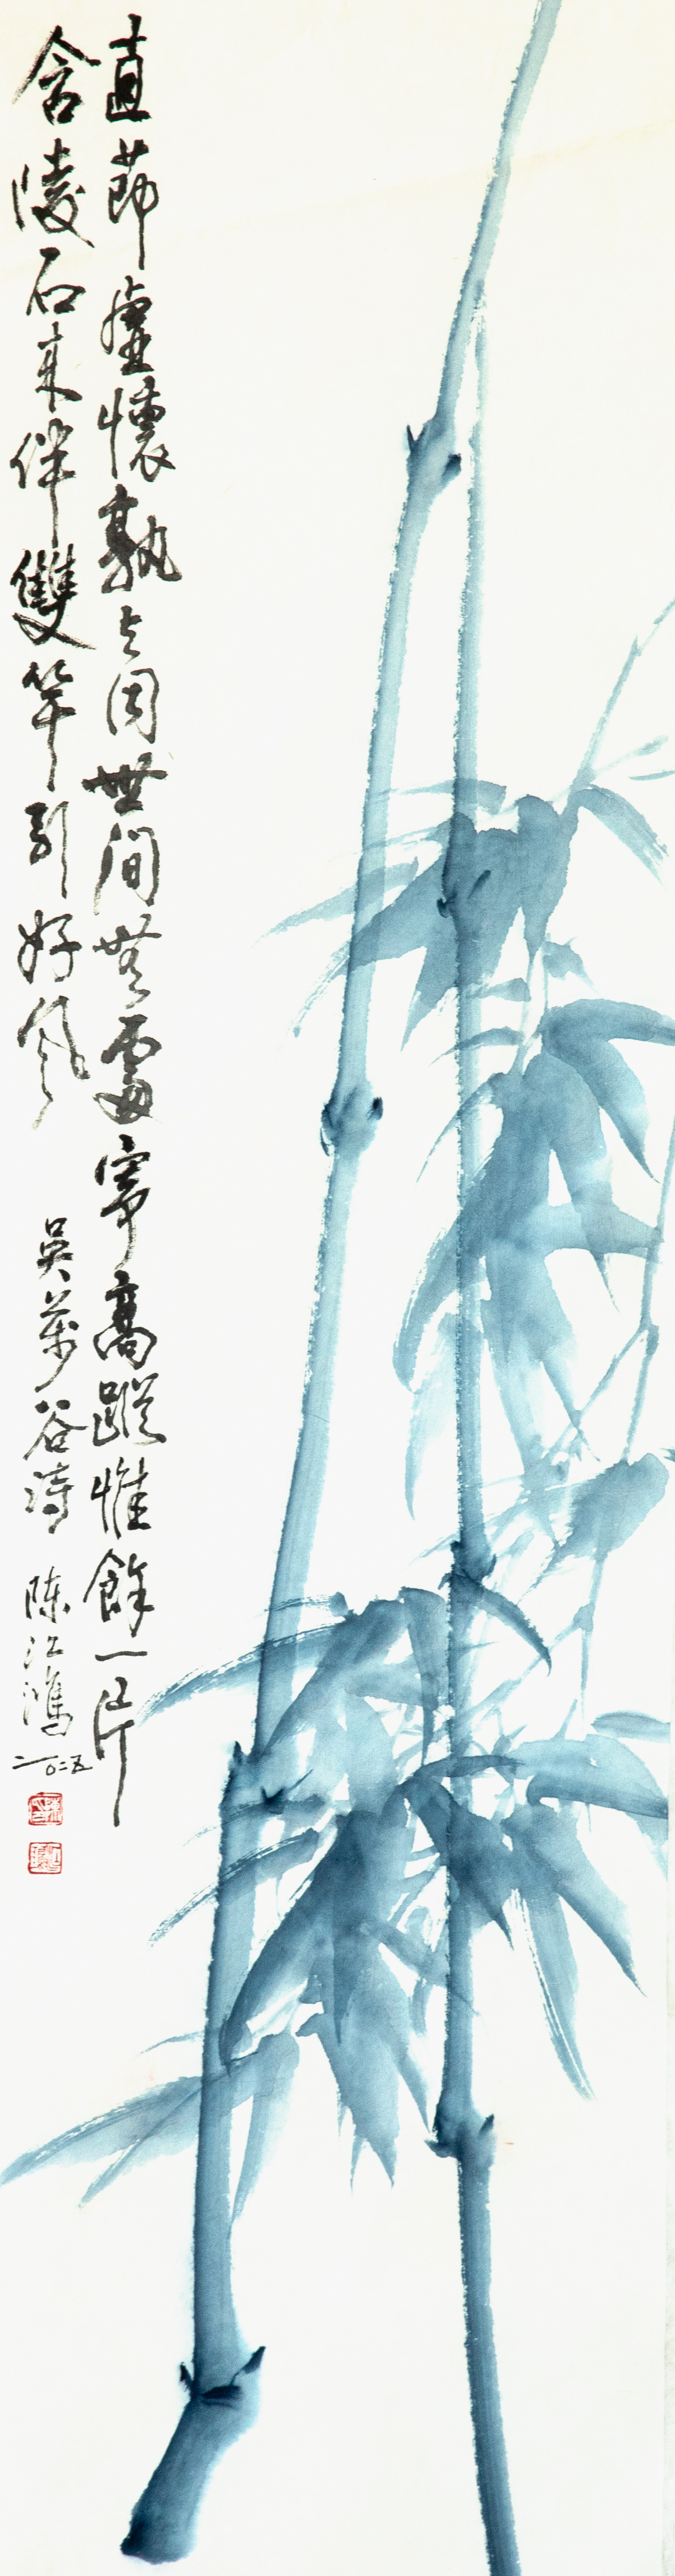 直節虛懷孰與同世間無處寄高蹤惟餘一片
含陵石來伴雙竿引好風
吳萬谷詩 陈江鴻 二〇二五